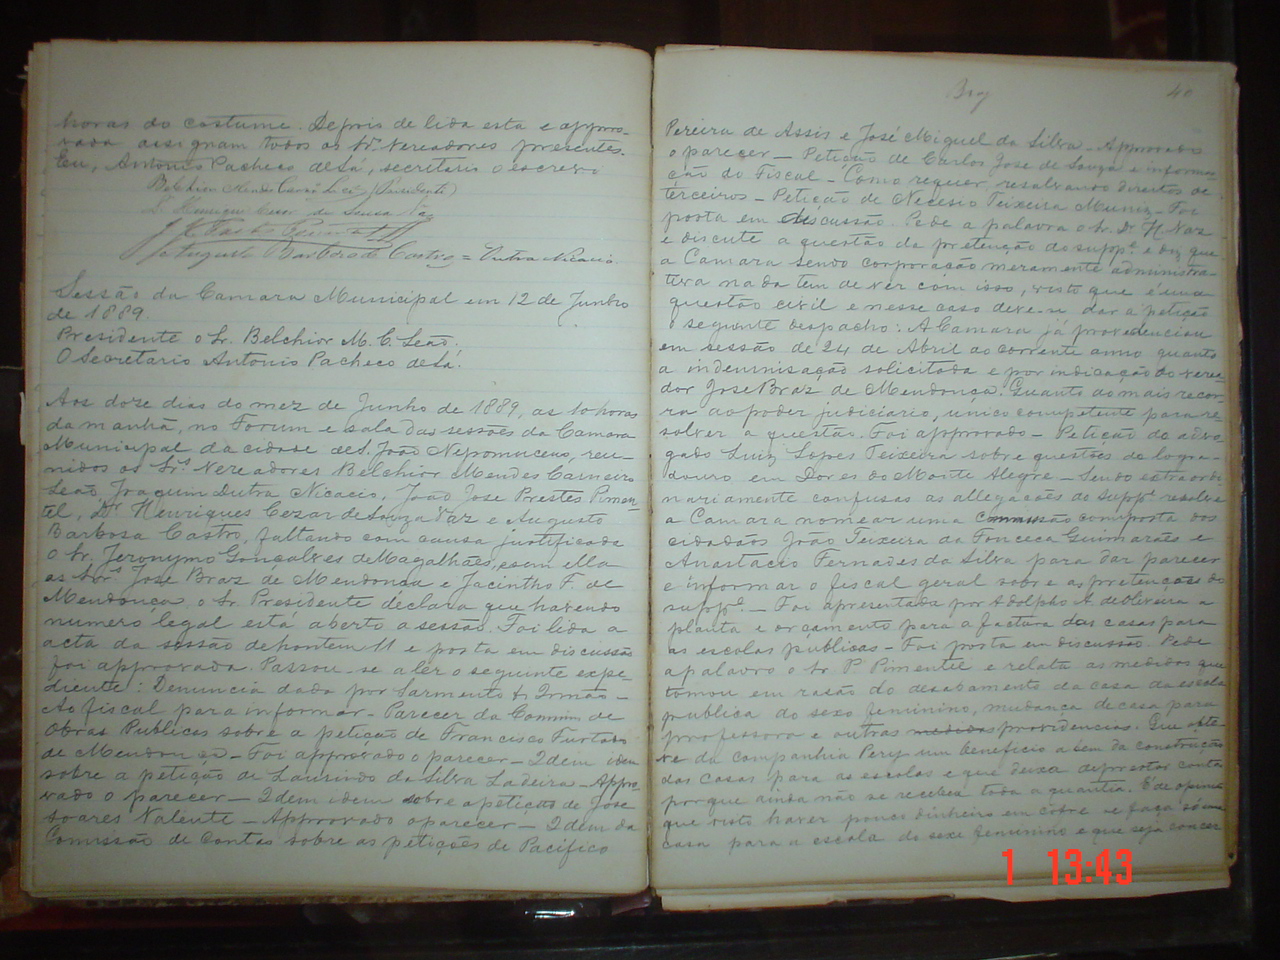 horas do costume. Depois de lida esta e appro-
vada assignam todos os Srs. Vereadores presentes.
Eu, Antonio Pacheco de Sá, secretario o escrevo
Belchior Mendes Carneiro Leão (Presidente)
Dr. Henrique Cezar de Souza Vaz
Augusto Barbosa de Castro = Dutra Nicacio.
Sessão da Camara Municipal em 12 de Junho
de 1889.
Presidente o Sr. Belchior M. C. Leão.
O Secretario Antonio Pacheco de Sá.
Aos doze dias do mez de Junho de 1889, as 10 horas
da manhã, no Forum e sala das sessões da Camara
Municipal da cidade de S. João Nepomuceno, reu-
nidos os Srs. Vereadores Belchior Mendes Carneiro
Leão, Joaquim Dutra Nicacio, João José Prestes Pimen-
tel, Dr. Henriques Cezar de Souza Vaz e Augusto
Barbosa Castro, faltando com causa justificada
o Sr. Jeronymo Gonçalves de Magalhães, e sem ella
os Srs. José Braz de Mendonça e Jacintho F. de
Mendonça o Sr. Presidente declara que havendo
numero legal está aberto a sessão. Foi lida a
acta da sessão de hontem 11 e posta em discussão
foi approvada. Passou-se a ler o seguinte expe-
diente: Denuncia dada por Sarmento & Irmão -
Ao fiscal para informar - Parecer da Commim de
Obras Publicas sobre a petição de Francisco Furtado
de Mendonça - Foi approvado o parecer - Idem idem
sobre a petição de Laurindo da Silva Ladeira - Appro-
vado o parecer - Idem idem sobre a petição de José
Soares Valente - Approvado o parecer - Idem da
Comissão de Contas sobre as petições de Pacifico
40
Pereira de Assis e José Miguel da Silva - Approvado
o parecer - Petição de Carlos José de Souza e informa-
ção do Fiscal - Como requer, resalvando direitos de
terceiros - Petição de Necesio Teixeira Muniz - Foi
posta em discussão. Pede a palavra o Sr. Dr. H. Vaz
e discute a questão da pretenção do suppe. e diz que
a Camara sendo corporação meramente administra-
tiva nada tem de ver com isso, visto que é uma
questão civil e nesse caso deve-se dar a petição
o seguinte despacho: A Camara já providenciou
em sessão de 24 de Abril do corrente anno quanto
a indemnisação solicitada e por indicação do verea-
dor José Braz de Mendonça. Quanto ao mais recor-
ra ao poder judiciario, unico competente para re-
solver a questão. Foi approvado - Petição do advo-
gado Luiz Lopes Teixeira sobre questões do logra-
douro em Dores do Monte Alegre - Sendo extraordi-
nariamente confusas as allegações do suppe. resolve
a Camara nomear uma commissão composta dos
cidadãos João Teixeira da Fonceca Guimarães e
Anastacio Fernades da Silva para dar parecer
e informar o fiscal geral sobre as pretenções do
suppe. - Foi apresentada por Adolpho A. de Oliveira a
planta e orçamento para a factura das casas para
as escolas publicas - Foi posta em discussão. Pede
a palavra o Sr. P. Pimentel e relata as medidas que
tomou em rasão do desabamento da casa da escola
publica do sexo feminino, mudança de casa para
professora e outras medidas providencias. Que obte-
ve da companhia Pery um beneficio a bem da construcção
das casas para as escolas e que deixa de prestar contas
por que ainda não se recebeu toda a quantia. É de opinião
que visto haver pouco dinheiro em cobre se faça só uma
casa para a escola do sexo femunino e que seja concer
1 13:43